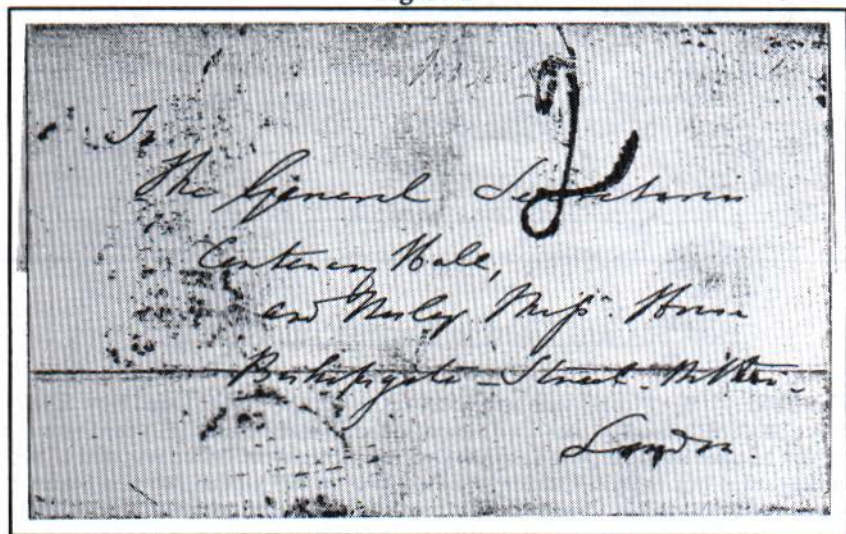 To
The General Secretaries
Centenary Hall,
and Wesley Miss. House
Bishopsgate - Street - Within -
London.